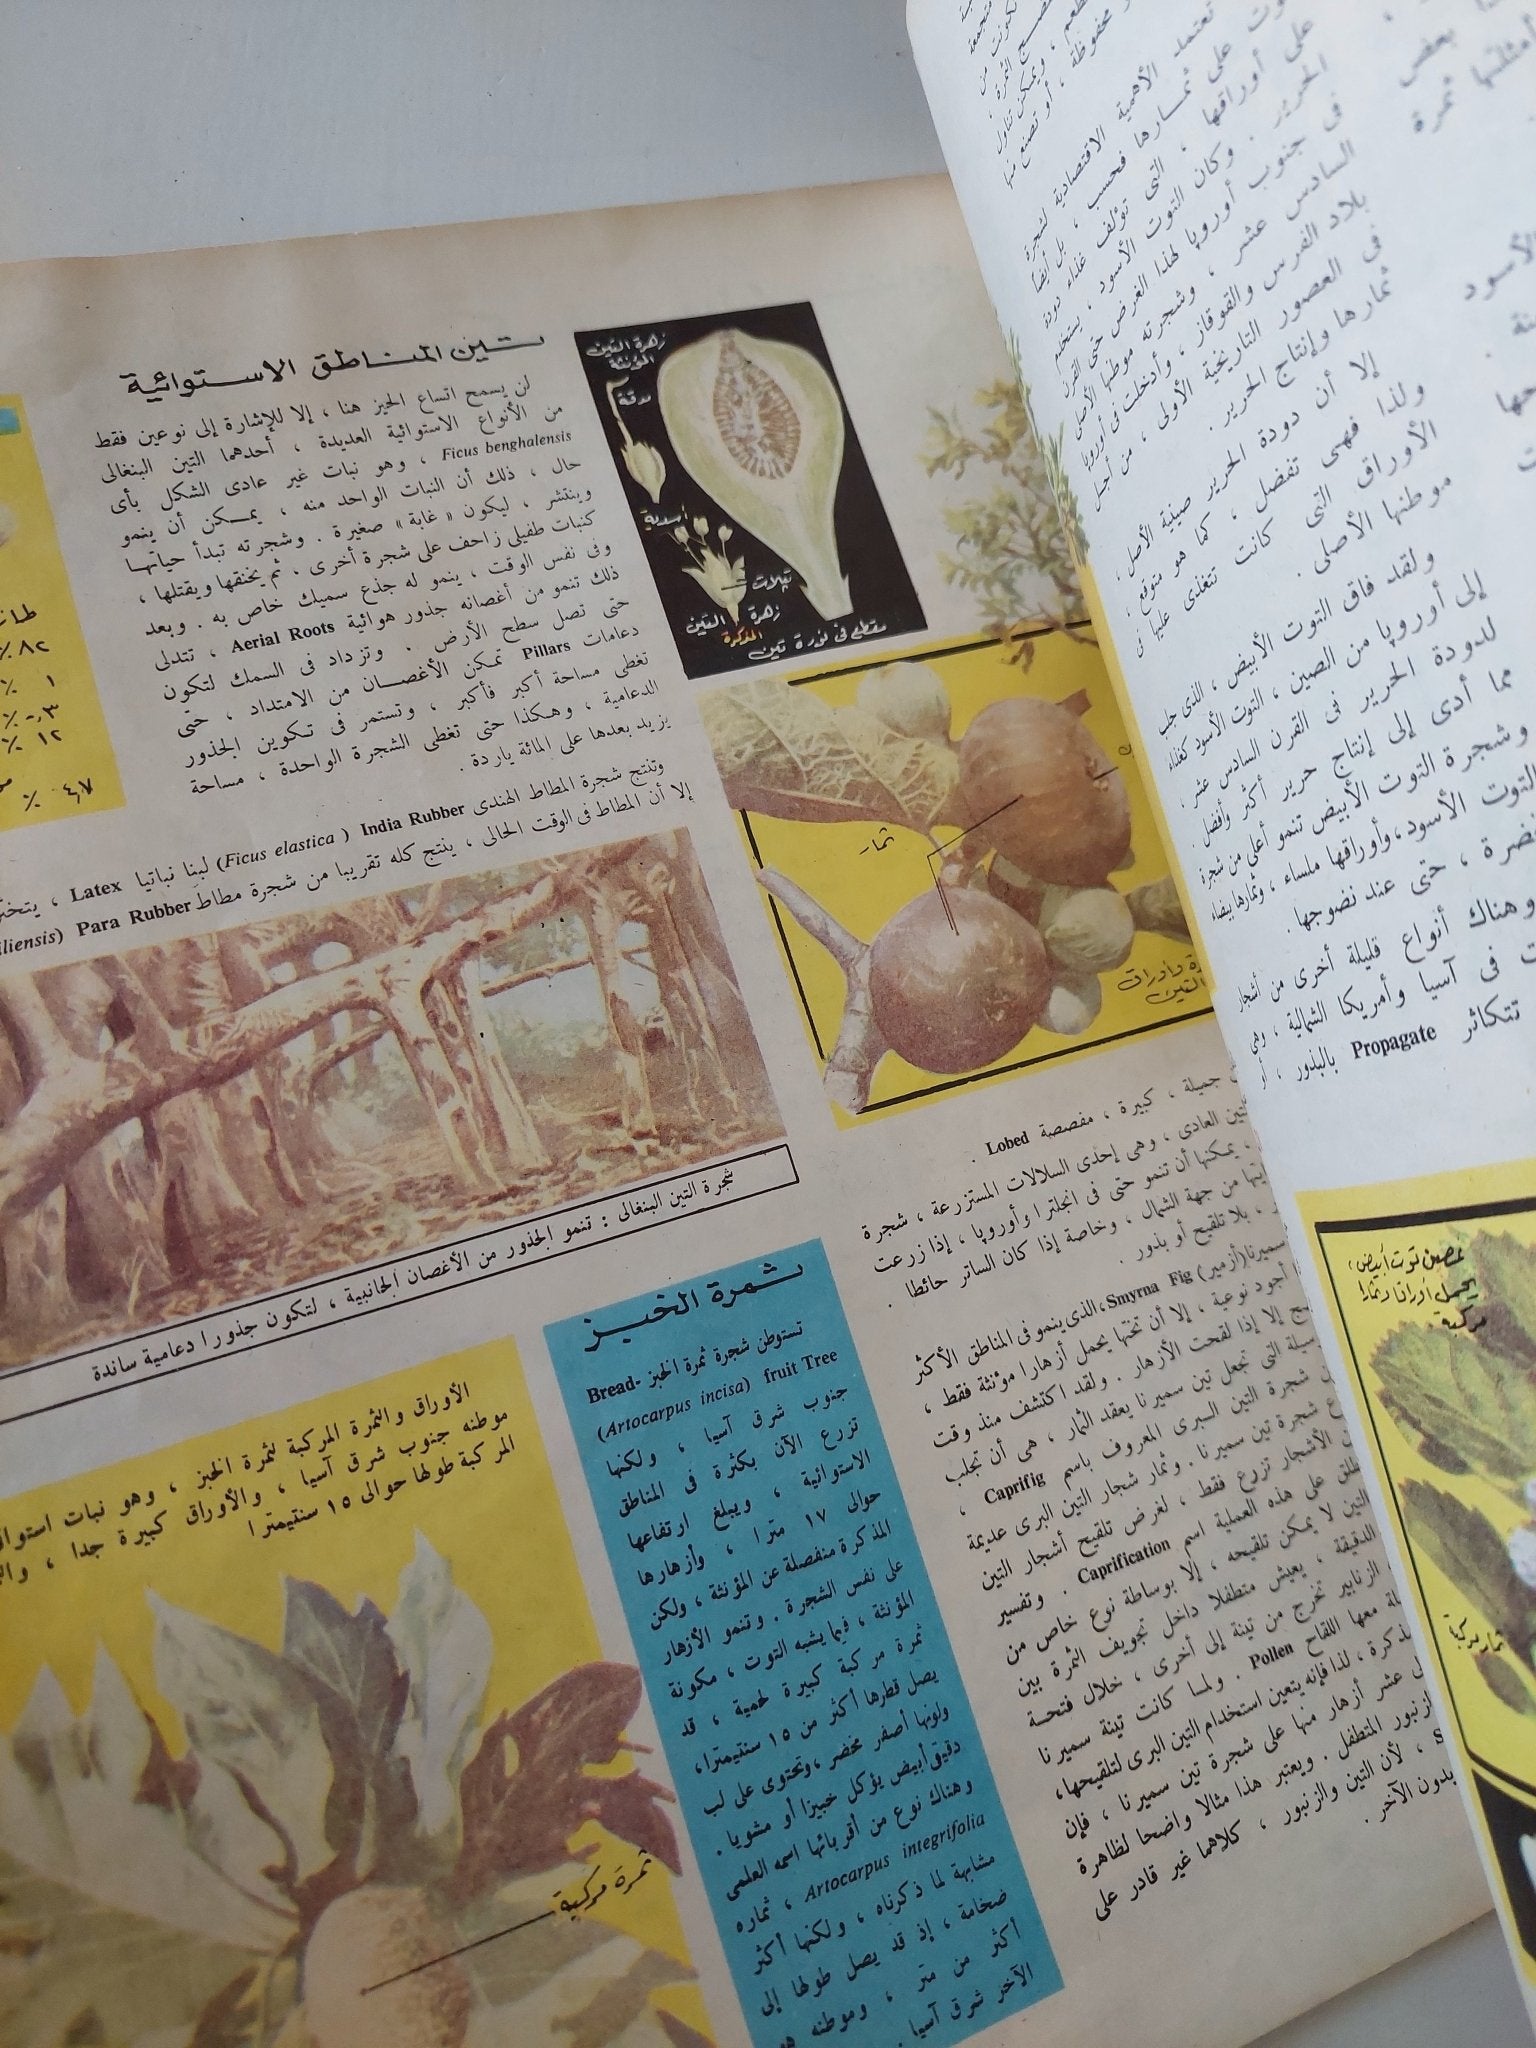 تين المناطق الاستوائية
لن يسمح اتساع الحيز هنا ، إلا للإشارة إلى نوعين فقط
من الأنواع الاستوائية العديدة ، أحدهما التين البنغالى
Ficus benghalensis ، وهو نبات غير عادى الشكل بأى
حال ، ذلك أن النبات الواحد منه ، يمكن أن ينمو
وينتشر ، ليكون « غابة » صغيرة . وشجرته تبدأ حياتها
كنبات طفيلى زاحف على شجرة أخرى ، ثم يخنقها ويقتلها ،
وفى نفس الوقت ، ينمو له جذع سميك خاص به . وبعد
ذلك تنمو من أغصانه جذور هوائية Aerial Roots ، تتدلى
حتى تصل سطح الأرض . وتزداد فى السمك لتكون
دعامات Pillars تمكن الأغصان من الامتداد ، حتى
تغطى مساحة أكبر فأكبر ، وتستمر فى تكوين الجذور
الدعامية ، وهكذا حتى تغطى الشجرة الواحدة ، مساحة
يزيد بعدها على المائة ياردة .
وتنتج شجرة المطاط الهندى India Rubber ( Ficus elastica) لبنا نباتيا Latex ، يتخثر
إلا أن المطاط فى الوقت الحالى ، ينتج كله تقريبا من شجرة مطاط Para Rubber
زهرة التين
المؤنثة
مدقة
أسدية
بتلات
زهرة التين
المذكرة
مقطع فى نورة تين
ثمار
وأوراق
التين
شجرة التين البنغالى : تنمو الجذور من الأغصان الجانبية ، لتكون جذورا دعامية ساندة
جميلة ، كبيرة ، مفصصة Lobed .
التين العادى ، وهى إحدى السلالات المستزرعة ، شجرة
، يمكنها أن تنمو حتى فى انجلترا وأوروپا ، إذا زرعت
من جهة الشمال ، وخاصة إذا كان الساتر حائطا .
، بلا تلقيح أو بذور .
سميرنا (أزمير) Smyrna Fig ، الذى ينمو فى المناطق الأكثر
أجود نوعية ، إلا أن تختها يحمل أزهارا مؤنثة فقط ،
إلا إذا لقحت الأزهار . ولقد اكتشف منذ وقت
التى تجعل تين سميرنا يعقد الثمار ، هى أن تجلب
شجرة التين البرى المعروف باسم Caprifig ،
شجرة تين سميرنا . وثمار شجار التين البرى عديمة
الأشجار تزرع فقط ، لغرض تلقيح أشجار التين
على هذه العملية اسم Caprification . وتفسير
التين لا يمكن تلقيحه ، إلا بوساطة نوع خاص من
الدقيقة ، يعيش متطفلا داخل تجويف الثمرة بين
الزنابير تخرج من تينة إلى أخرى ، خلال فتحة
معها اللقاح Pollen . ولما كانت تينة سميرنا
، لذا فإنه يتعين استخدام التين البرى لتلقيحها،
عشر أزهار منها على شجرة تين سميرنا ، فإن
المتطفل . ويعتبر هذا مثالا واضحا لظاهرة
، لأن التين والزنبور ، كلاهما غير قادر على
بدون الآخر .
ثمرة الخبز
تستوطن شجرة ثمرة الخبز Bread-
fruit Tree (Artocarpus incisa)
جنوب شرق آسيا ، ولكنها
تزرع الآن بكثرة فى المناطق
الاستوائية ، ويبلغ ارتفاعها
حوالى ١٧ مترا ، وأزهارها
المذكرة منفصلة عن المؤنثة ، ولكن
على نفس الشجرة . وتنمو الأزهار
المؤنثة ، فيما يشبه التوت ، مكونة
ثمرة مركبة كبيرة لحمية ، قد
يصل قطرها أكثر من ١٥ سنتيمترا،
ولونها أصفر مخضر ، وتحتوى على لب
دقيقى أبيض يؤكل خبيزا أو مشويا .
وهناك نوع من أقربائها اسمه العلمى
Artocarpus integrifolia ، ثماره
مشابهة لما ذكرناه ، ولكنها أكثر
ضخامة ، إذ قد يصل طولها إلى
أكثر من متر ، وموطنه هو
الآخر شرق آسيا .
الأوراق والثمرة المركبة لثمرة الخبز ، وهو نبات
موطنه جنوب شرق آسيا ، والأوراق كبيرة جدا ،
المركبة طولها حوالى ١٥ سنتيمترا
ثمرة مركبة
تعتمد الأهمية الاقتصادية لشجرة
على ثمارها فحسب ، بل أيضا
على أوراقها ، التى تؤلف غذاء دودة
الحرير . وكان التوت الأسود ، يستخدم
فى جنوب أوروپا لهذا الغرض حتى القرن
السادس عشر ، وشجرته موطنها الأصلى
بلاد الفرس والقوقاز ، وأدخلت فى أوروپا
فى العصور التاريخية الأولى ، من أجل
ثمارها وإنتاج الحرير .
إلا أن دودة الحرير صينية الأصل ،
ولذا فهى تفضل ، كما هو متوقع ،
الأوراق التى كانت تتغذى عليها فى
موطنها الأصلى .
ولقد فاق التوت الأبيض ، الذى جلب
إلى أوروپا من الصين ، التوت الأسود كغذاء
لدودة الحرير فى القرن السادس عشر ،
مما أدى إلى إنتاج حرير أكثر وأفضل .
وشجرة التوت الأبيض تنمو أعلى من شجرة
التوت الأسود ، وأوراقها ملساء ، وثمارها بيضاء
، حتى عند نضوجها .
وهناك أنواع قليلة أخرى من أشجار
فى آسيا وأمريكا الشمالية ، وهى
تتكاثر Propagate بالبذور ، أو
غصن توت أبيض ،
يحمل أوراقا وثمارا
مركبة
ثمار مركبة